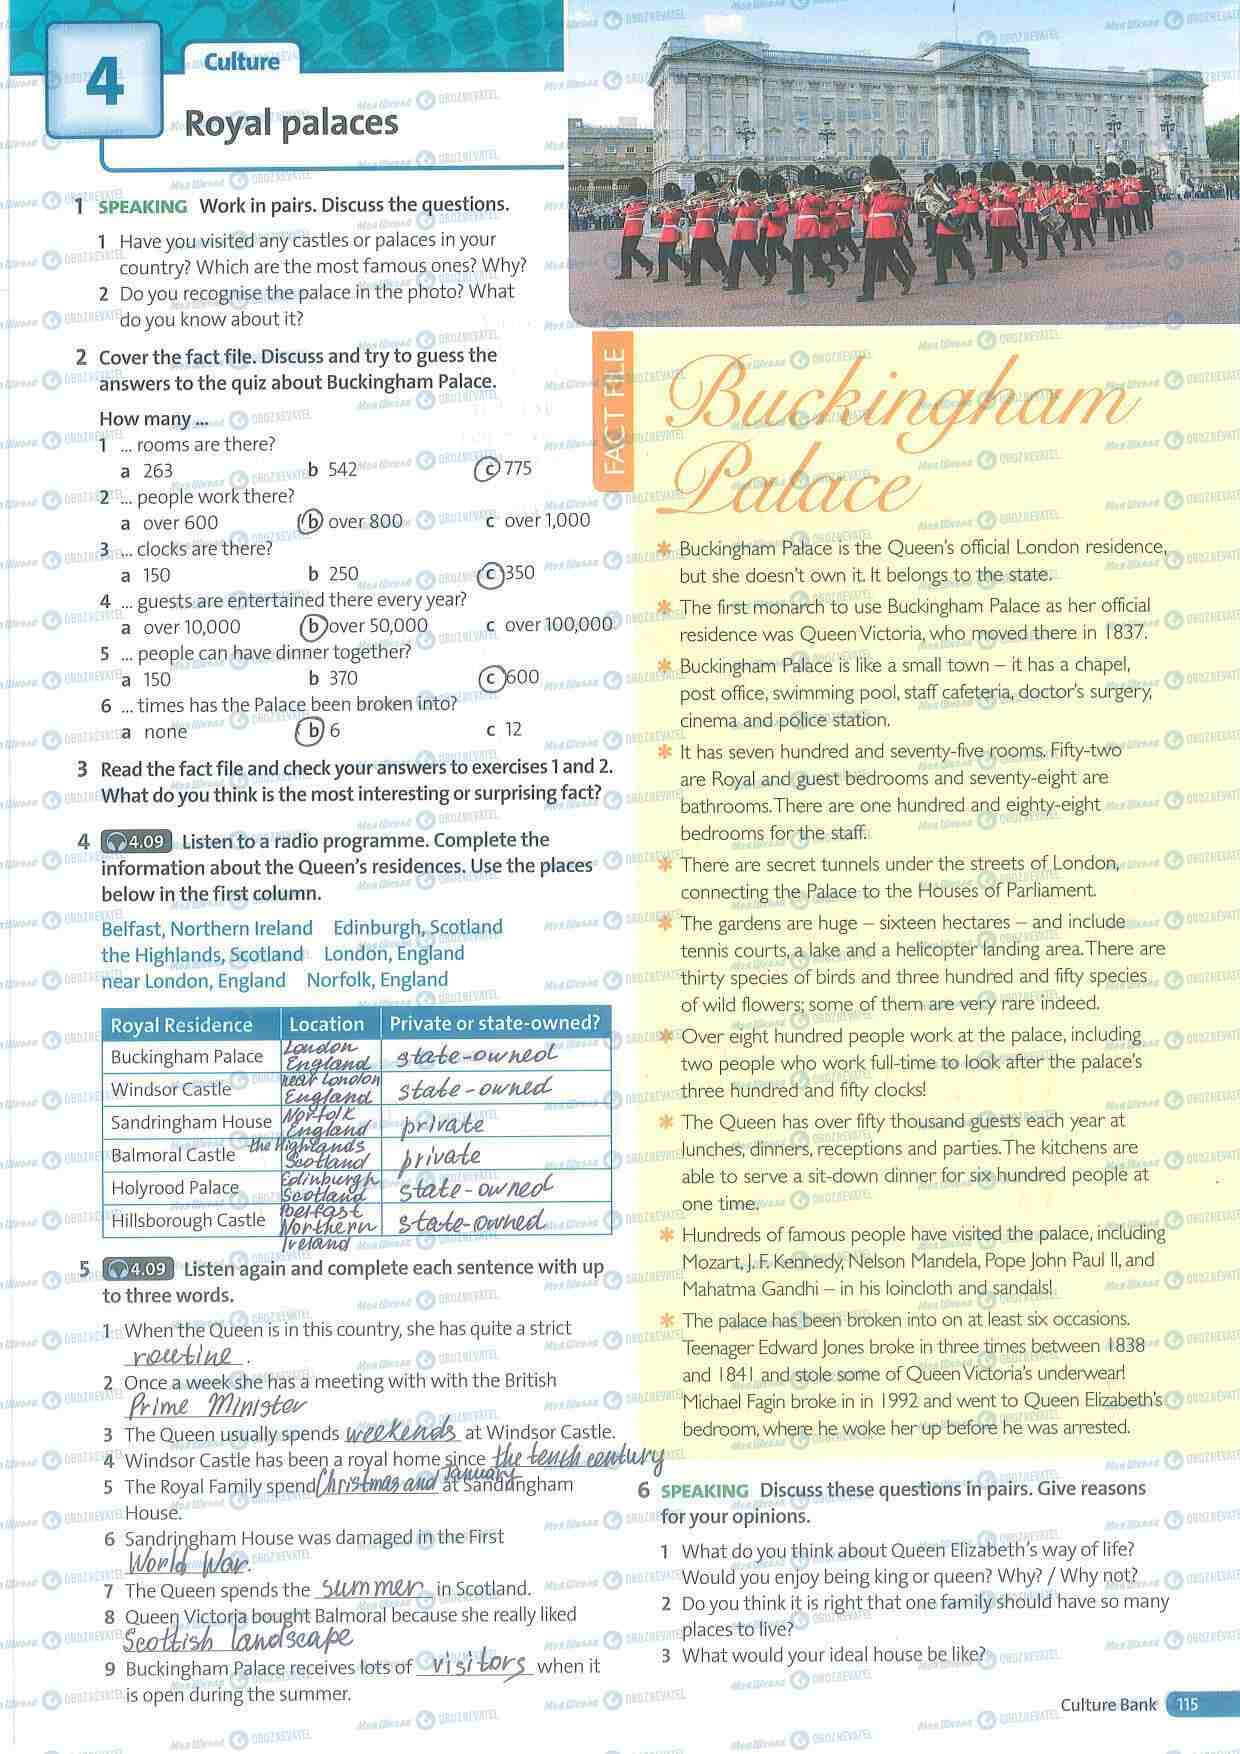 4
Culture
Royal palaces
1 SPEAKING Work in pairs. Discuss the questions.
1 Have you visited any castles or palaces in your
country? Which are the most famous ones? Why?
2 Do you recognise the palace in the photo? What
do you know about it?
2 Cover the fact file. Discuss and try to guess the
answers to the quiz about Buckingham Palace.
How many ...
1 ... rooms are there?
a 263 b 542 c 775
2 ... people work there?
a over 600 b over 800 c over 1,000
3 ... clocks are there?
a 150 b 250 c 350
4 ... guests are entertained there every year?
a over 10,000 b over 50,000 c over 100,000
5 ... people can have dinner together?
a 150 b 370 c 600
6 ... times has the Palace been broken into?
a none b 6 c 12
3 Read the fact file and check your answers to exercises 1 and 2.
What do you think is the most interesting or surprising fact?
4 4.09 Listen to a radio programme. Complete the
information about the Queen's residences. Use the places
below in the first column.
Belfast, Northern Ireland Edinburgh, Scotland
the Highlands, Scotland London, England
near London, England Norfolk, England
Royal Residence Location Private or state-owned?
Buckingham Palace London England state-owned
Windsor Castle near London England state-owned
Sandringham House Norfolk England private
Balmoral Castle the Highlands Scotland private
Holyrood Palace Edinburgh Scotland state-owned
Hillsborough Castle Belfast Northern Ireland state-owned
5 4.09 Listen again and complete each sentence with up
to three words.
1 When the Queen is in this country, she has quite a strict
routine.
2 Once a week she has a meeting with with the British
Prime Minister
3 The Queen usually spends weekends at Windsor Castle.
4 Windsor Castle has been a royal home since the tenth century
5 The Royal Family spend Christmas and January at Sandringham
House.
6 Sandringham House was damaged in the First
World War.
7 The Queen spends the summer in Scotland.
8 Queen Victoria bought Balmoral because she really liked
Scottish landscape
9 Buckingham Palace receives lots of visitors when it
is open during the summer.
FACT FILE
Buckingham
Palace
* Buckingham Palace is the Queen's official London residence,
but she doesn't own it. It belongs to the state.
* The first monarch to use Buckingham Palace as her official
residence was Queen Victoria, who moved there in 1837.
* Buckingham Palace is like a small town – it has a chapel,
post office, swimming pool, staff cafeteria, doctor's surgery,
cinema and police station.
* It has seven hundred and seventy-five rooms. Fifty-two
are Royal and guest bedrooms and seventy-eight are
bathrooms. There are one hundred and eighty-eight
bedrooms for the staff.
* There are secret tunnels under the streets of London,
connecting the Palace to the Houses of Parliament.
* The gardens are huge – sixteen hectares – and include
tennis courts, a lake and a helicopter landing area. There are
thirty species of birds and three hundred and fifty species
of wild flowers; some of them are very rare indeed.
* Over eight hundred people work at the palace, including
two people who work full-time to look after the palace's
three hundred and fifty clocks!
* The Queen has over fifty thousand guests each year at
lunches, dinners, receptions and parties. The kitchens are
able to serve a sit-down dinner for six hundred people at
one time.
* Hundreds of famous people have visited the palace, including
Mozart, J. F. Kennedy, Nelson Mandela, Pope John Paul II, and
Mahatma Gandhi – in his loincloth and sandals!
* The palace has been broken into on at least six occasions.
Teenager Edward Jones broke in three times between 1838
and 1841 and stole some of Queen Victoria's underwear!
Michael Fagin broke in in 1992 and went to Queen Elizabeth's
bedroom, where he woke her up before he was arrested.
6 SPEAKING Discuss these questions in pairs. Give reasons
for your opinions.
1 What do you think about Queen Elizabeth's way of life?
Would you enjoy being king or queen? Why? / Why not?
2 Do you think it is right that one family should have so many
places to live?
3 What would your ideal house be like?
Culture Bank 115